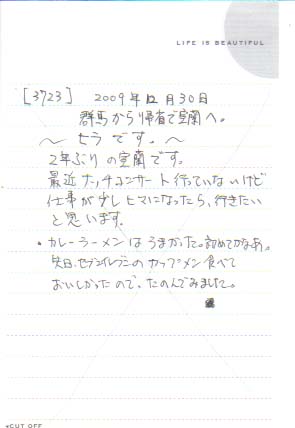 LIFE IS BEAUTIFUL
[3723] 2009年12月30日
群馬から帰省で室蘭へ。
〜 セラです。〜
2年ぶりの室蘭です。
最近ナッチコンサート行っていないけど
仕事が少しヒマになったら、行きたい
と思います。
・カレーラーメンはうまかった。初めてかなあ。
先日、セブンイレブンのカップメン食べて
おいしかったので、たのんでみました。
CUT OFF